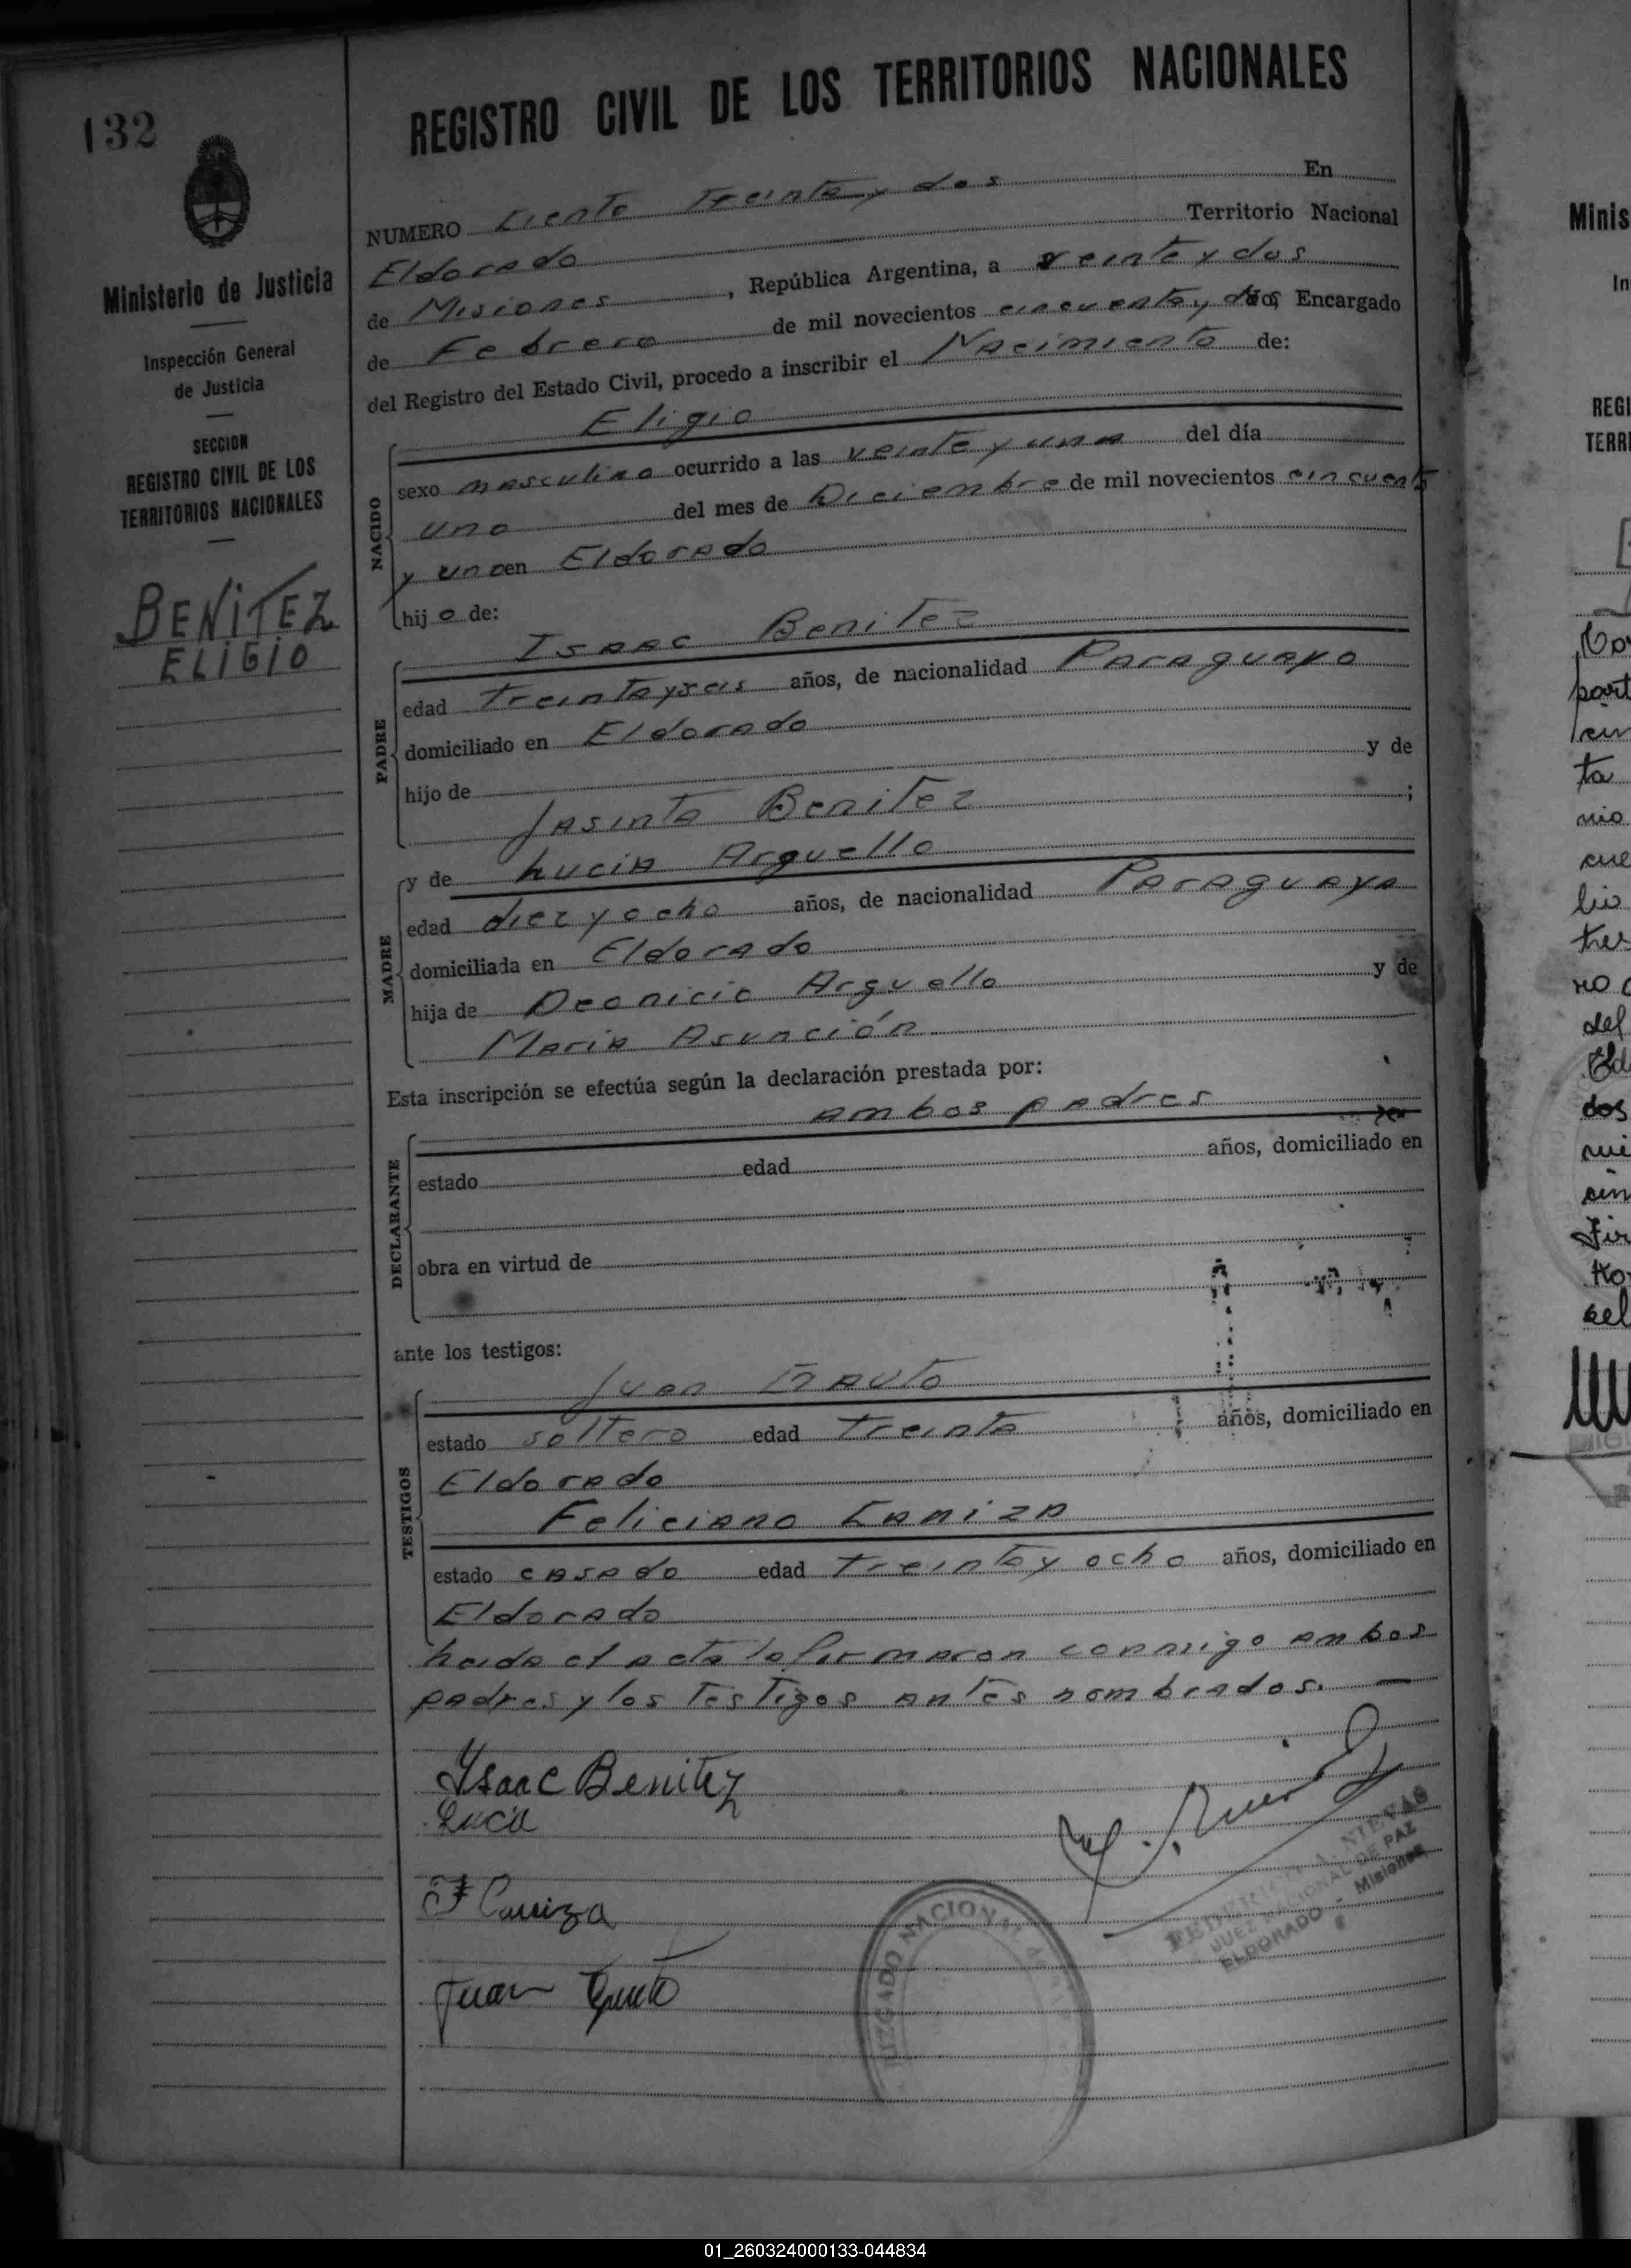 132
REGISTRO CIVIL DE LOS TERRITORIOS NACIONALES
NUMERO Ciento Treinta y dos En
Eldorado Territorio Nacional
de Misiones, República Argentina, a veinte y dos
de Febrero de mil novecientos cincuenta y dos, Encargado
del Registro del Estado Civil, procedo a inscribir el Nacimiento de:
Ministerio de Justicia
Inspección General
de Justicia
SECCION
REGISTRO CIVIL DE LOS
TERRITORIOS NACIONALES
BENITEZ
ELIGIO
NACIDO
Eligio
sexo masculino ocurrido a las veinte y una del día
uno del mes de Diciembre de mil novecientos cincuenta
y uno en Eldorado
hijo de:
PADRE
Isaac Benitez
edad treinta y seis años, de nacionalidad Paraguayo
domiciliado en Eldorado
hijo de y de
Jasinta Benitez ;
MADRE
y de Lucia Arguello
edad diez y ocho años, de nacionalidad Paraguaya
domiciliada en Eldorado
hija de Deonicio Arguello y de
Maria Asunción
Esta inscripción se efectúa según la declaración prestada por:
DECLARANTE
ambos padres
estado edad años, domiciliado en
obra en virtud de
ante los testigos:
TESTIGOS
Juan
estado soltero edad treinta años, domiciliado en
Eldorado
Feliciano Caniza
estado casado edad treinta y ocho años, domiciliado en
Eldorado
Leida el acta la firmaron conmigo ambos
padres y los Testigos antes nombrados.
Ysaac Benitez
Lucia
F Caniza
Juan
JUZGADO NACIONAL
FEDERICO A. NIETAS
JUEZ NACIONAL DE PAZ
ELDORADO - Misiones
Minis
In
REGI
TERR
part
ta
nio
cue
lio
tres
no
del
dos
sel
01_260324000133-044834